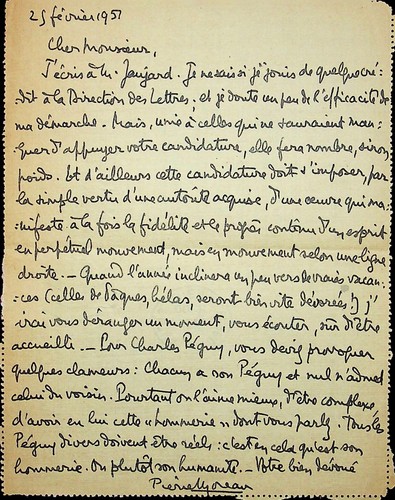 25 février 1951
Cher Monsieur,
J'écris à M. Jaujard. Je ne sais si je jouis de quelque cré-
dit à la Direction des Lettres, et je doute un peu de l'efficacité de
ma démarche. Mais, unie à celles qui ne sauraient man-
quer d'appuyer votre candidature, elle fera nombre, sinon
poids. Et d'ailleurs cette candidature doit s'imposer, par
la simple vertu d'une autorité acquise, d'une œuvre qui ma-
nifeste à la fois la fidélité et le progrès continu d'un esprit
en perpétuel mouvement, mais en mouvement selon une ligne
droite. — Quand l'année inclinera un peu vers de vraies vacan-
ces (celles de Pâques, hélas, seront bien vite dévorées !) j'
irai vous déranger un moment, vous écouter, sûr d'être
accueilli. — Pour Charles Péguy, vous devez provoquer
quelques clameurs : Chacun a son Péguy et nul n'admet
celui du voisin. Pourtant on l'aime mieux, d'être complexe,
d'avoir en lui cette « hommerie » dont vous parlez. Tous les
Péguy divers doivent être réels : c'est en cela qu'est son
hommerie. Ou plutôt son humanité. — Votre bien dévoué
Pierre Moreau